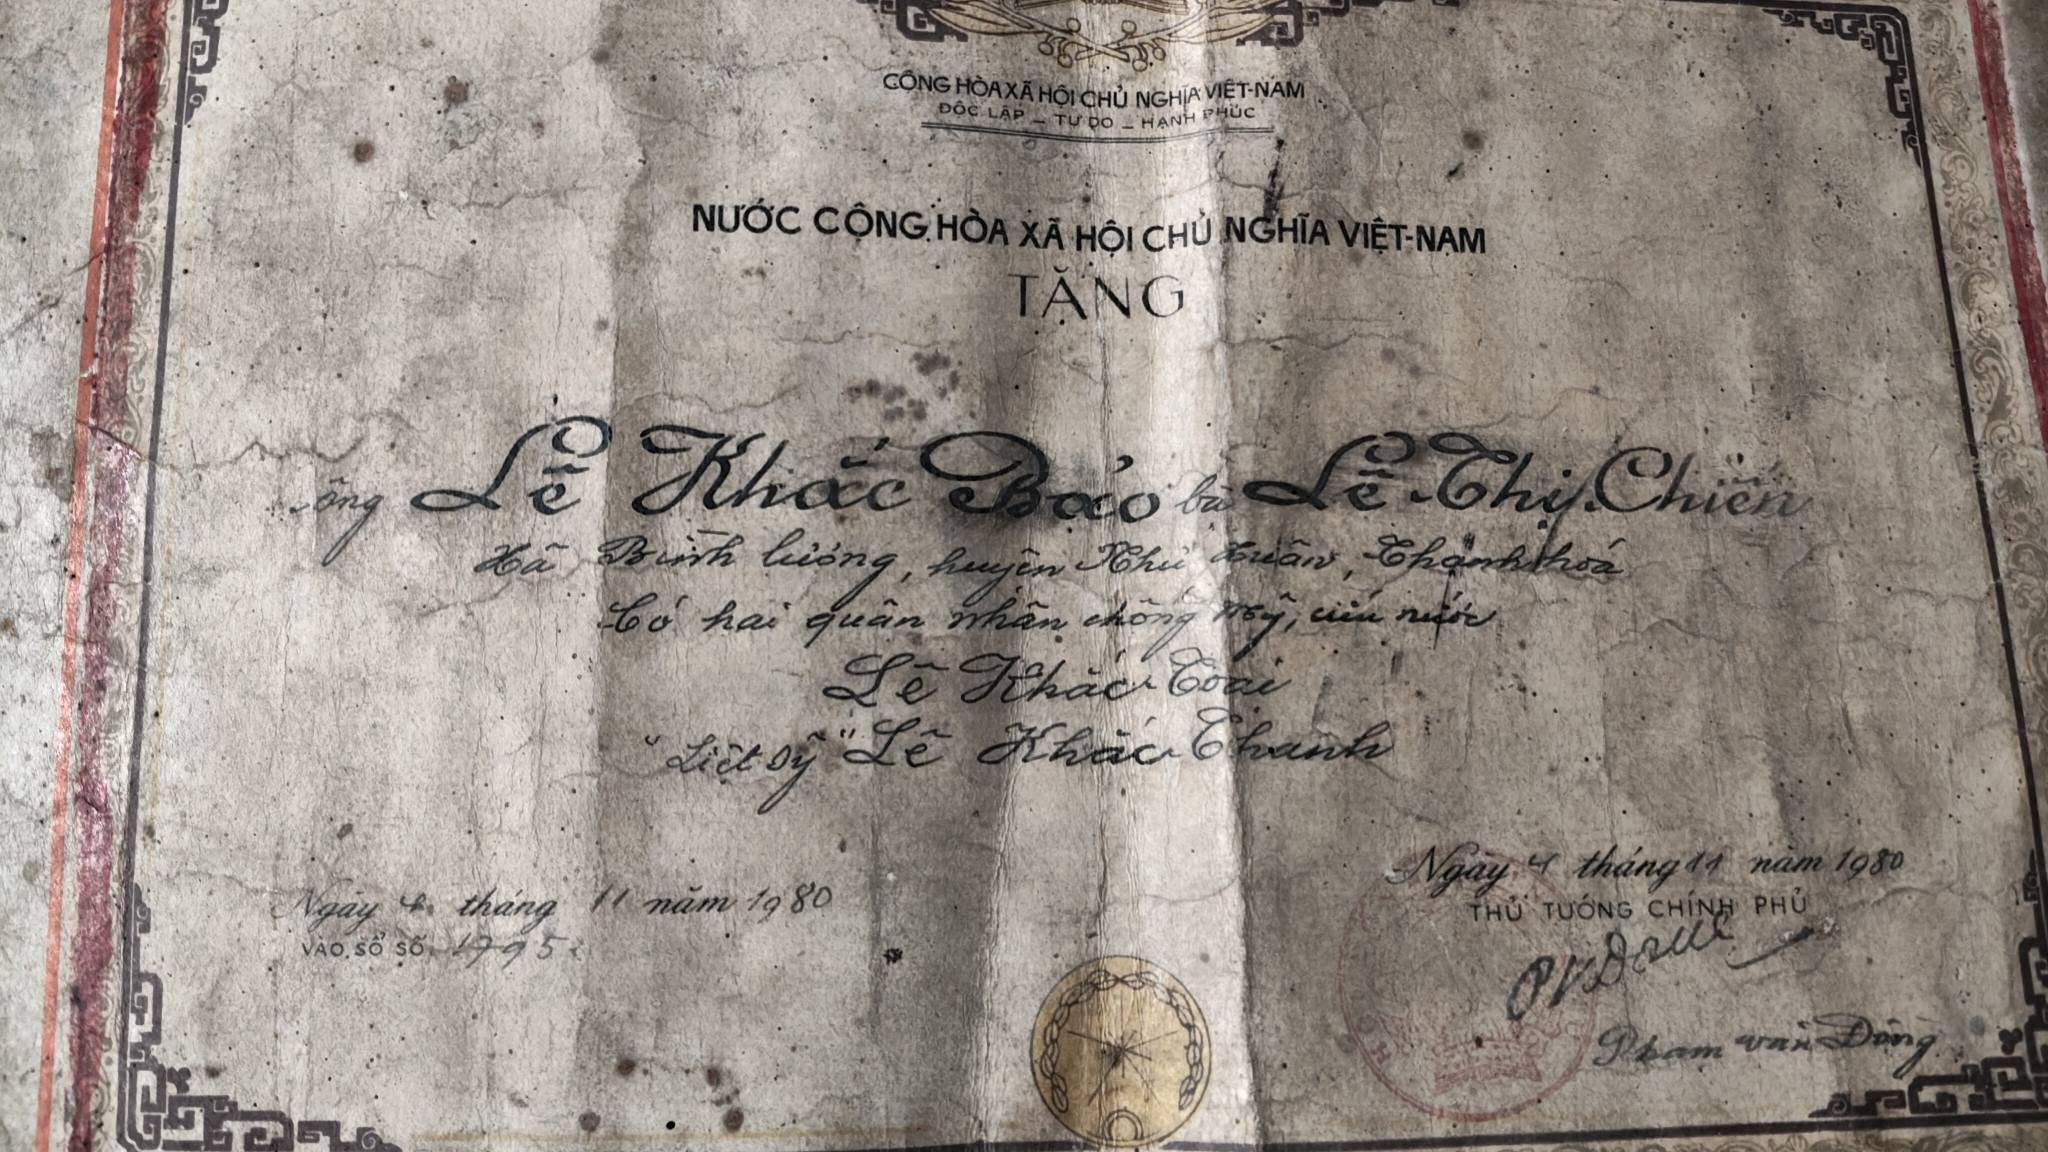 CỘNG HÒA XÃ HỘI CHỦ NGHĨA VIỆT-NAM
ĐỘC LẬP - TỰ DO - HẠNH PHÚC
NƯỚC CỘNG HÒA XÃ HỘI CHỦ NGHĨA VIỆT-NAM
TẶNG
ông Lê Khắc Bảo bà Lê Thị Chiến
Xã Bình lương, huyện Như Xuân, Thanh hoá
Có hai quân nhân chống Mỹ, cứu nước
Lê Khắc Toại
"Liệt sỹ" Lê Khắc Thanh
Ngày 4 tháng 11 năm 1980
Ngày 4 tháng 11 năm 1980
THỦ TƯỚNG CHÍNH PHỦ
VÀO SỔ SỐ
PVĐồng
Phạm văn Đồng